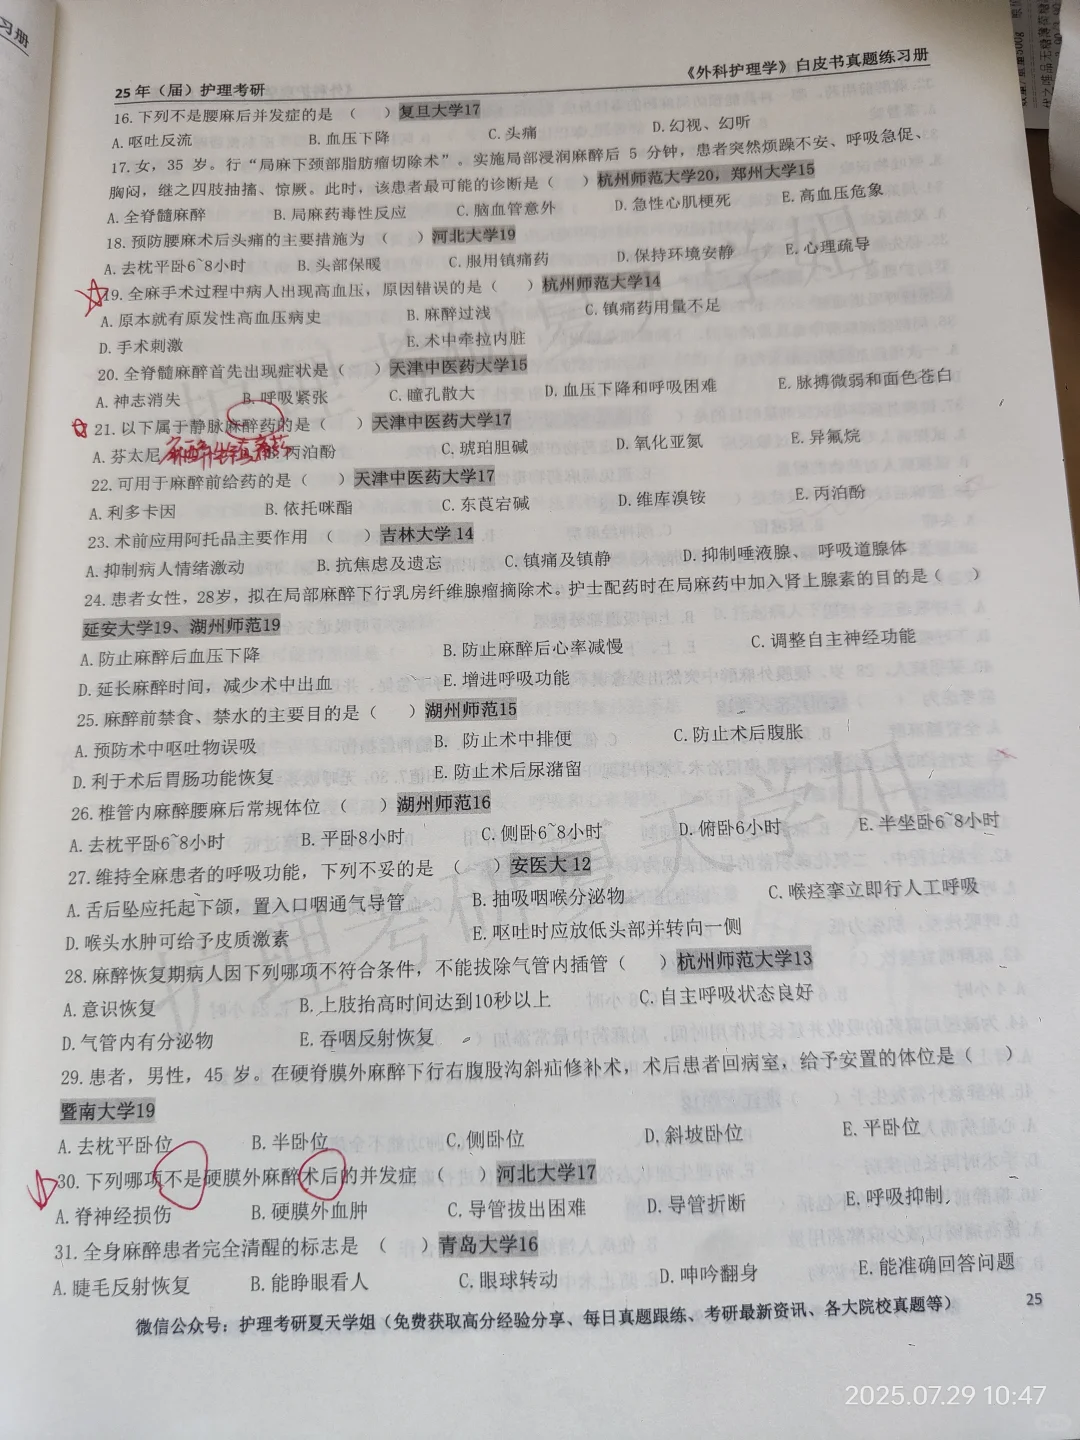 习册
25年（届）护理考研
《外科护理学》白皮书真题练习册
16.下列不是腰麻后并发症的是（ ）复旦大学17
A.呕吐反流 B.血压下降 C.头痛 D.幻视、幻听
17.女，35 岁。行“局麻下颈部脂肪瘤切除术”。实施局部浸润麻醉后 5 分钟，患者突然烦躁不安、呼吸急促、
胸闷，继之四肢抽搐、惊厥。此时，该患者最可能的诊断是（ ）杭州师范大学20，郑州大学15
A.全脊髓麻醉 B.局麻药毒性反应 C.脑血管意外 D.急性心肌梗死 E.高血压危象
18.预防腰麻术后头痛的主要措施为（ ）河北大学19
A.去枕平卧6~8小时 B.头部保暖 C.服用镇痛药 D.保持环境安静 E.心理疏导
19.全麻手术过程中病人出现高血压，原因错误的是（ ）杭州师范大学14
A.原本就有原发性高血压病史 B.麻醉过浅 C.镇痛药用量不足
D.手术刺激 E.术中牵拉内脏
20.全脊髓麻醉首先出现症状是（ ）天津中医药大学15
A.神志消失 B.呼吸紧张 C.瞳孔散大 D.血压下降和呼吸困难 E.脉搏微弱和面色苍白
21.以下属于静脉麻醉药的是（ ）天津中医药大学17
A.芬太尼 麻醉性镇痛药 B.丙泊酚 C.琥珀胆碱 D.氧化亚氮 E.异氟烷
22.可用于麻醉前给药的是（ ）天津中医药大学17
A.利多卡因 B.依托咪酯 C.东莨宕碱 D.维库溴铵 E.丙泊酚
23.术前应用阿托品主要作用（ ）吉林大学14
A.抑制病人情绪激动 B.抗焦虑及遗忘 C.镇痛及镇静 D.抑制唾液腺、 呼吸道腺体
24.患者女性，28岁，拟在局部麻醉下行乳房纤维腺瘤摘除术。护士配药时在局麻药中加入肾上腺素的目的是（ ）
延安大学19、湖州师范19
A.防止麻醉后血压下降 B.防止麻醉后心率减慢 C.调整自主神经功能
D.延长麻醉时间，减少术中出血 E.增进呼吸功能
25.麻醉前禁食、禁水的主要目的是（ ）湖州师范15
A.预防术中呕吐物误吸 B. 防止术中排便 C.防止术后腹胀
D.利于术后胃肠功能恢复 E.防止术后尿潴留
26.椎管内麻醉腰麻后常规体位（ ）湖州师范16
A.去枕平卧6~8小时 B.平卧8小时 C.侧卧6~8小时 D.俯卧6小时 E.半坐卧6~8小时
27.维持全麻患者的呼吸功能，下列不妥的是（ ）安医大12
A.舌后坠应托起下颌，置入口咽通气导管 B.抽吸咽喉分泌物 C.喉痉挛立即行人工呼吸
D.喉头水肿可给予皮质激素 E.呕吐时应放低头部并转向一侧
28.麻醉恢复期病人因下列哪项不符合条件，不能拔除气管内插管（ ）杭州师范大学13
A.意识恢复 B.上肢抬高时间达到10秒以上 C.自主呼吸状态良好
D.气管内有分泌物 E.吞咽反射恢复
29.患者，男性，45 岁。在硬脊膜外麻醉下行右腹股沟斜疝修补术，术后患者回病室，给予安置的体位是（ ）
暨南大学19
A.去枕平卧位 B.半卧位 C.侧卧位 D.斜坡卧位 E.平卧位
30.下列哪项不是硬膜外麻醉术后的并发症（ ）河北大学17
A.脊神经损伤 B.硬膜外血肿 C.导管拔出困难 D.导管折断 E.呼吸抑制
31.全身麻醉患者完全清醒的标志是（ ）青岛大学16
A.睫毛反射恢复 B.能睁眼看人 C.眼球转动 D.呻吟翻身 E.能准确回答问题
微信公众号：护理考研夏天学姐（免费获取高分经验分享、每日真题跟练、考研最新资讯、各大院校真题等）
25
护理考研夏天学姐
2025.07.29 10:47